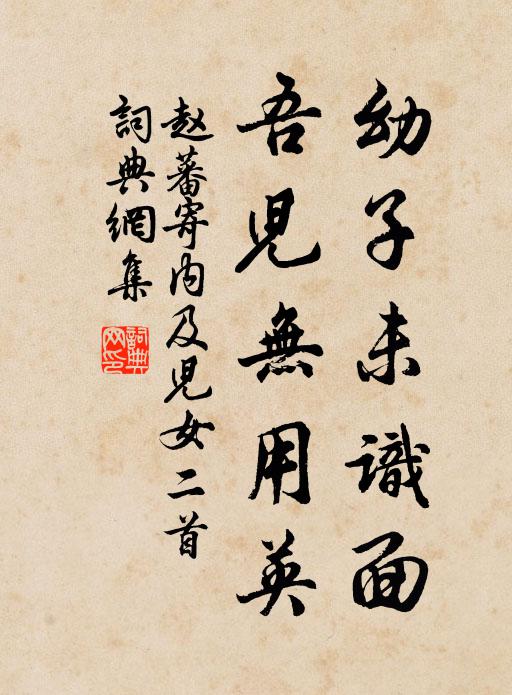 幼子未識面
吾児無用英
赵蕃寄内及児女二首
詞典網集
詞典网印